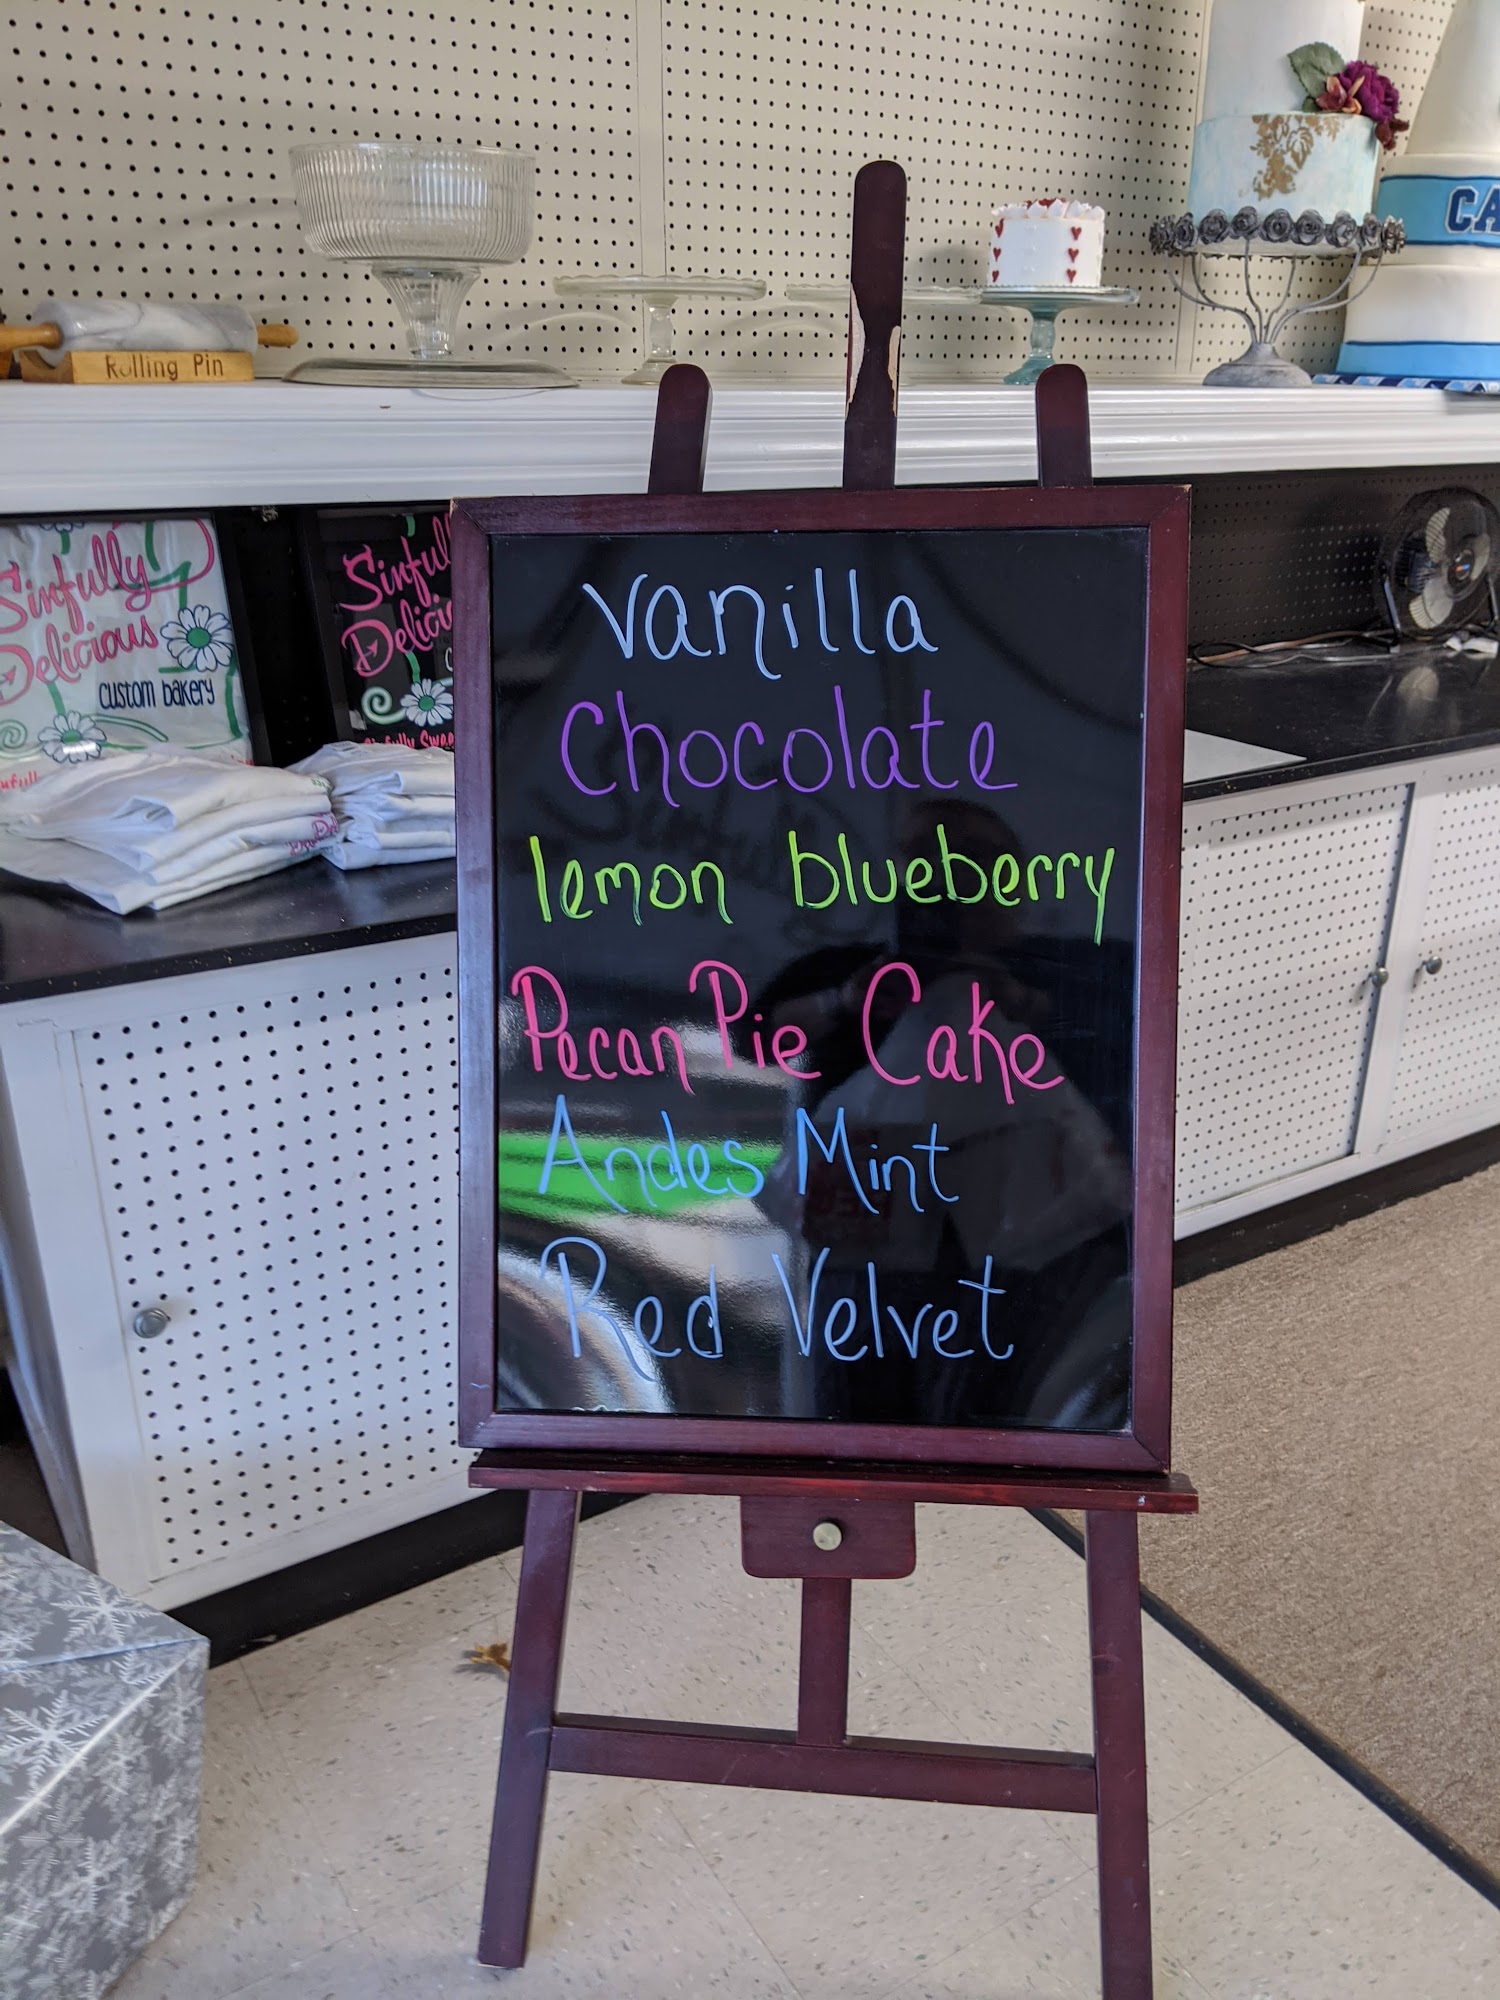 Rolling Pin
CA
Sinfully
Delicious
custom bakery
Vanilla
Chocolate
lemon blueberry
Pecan Pie Cake
Andes Mint
Red Velvet